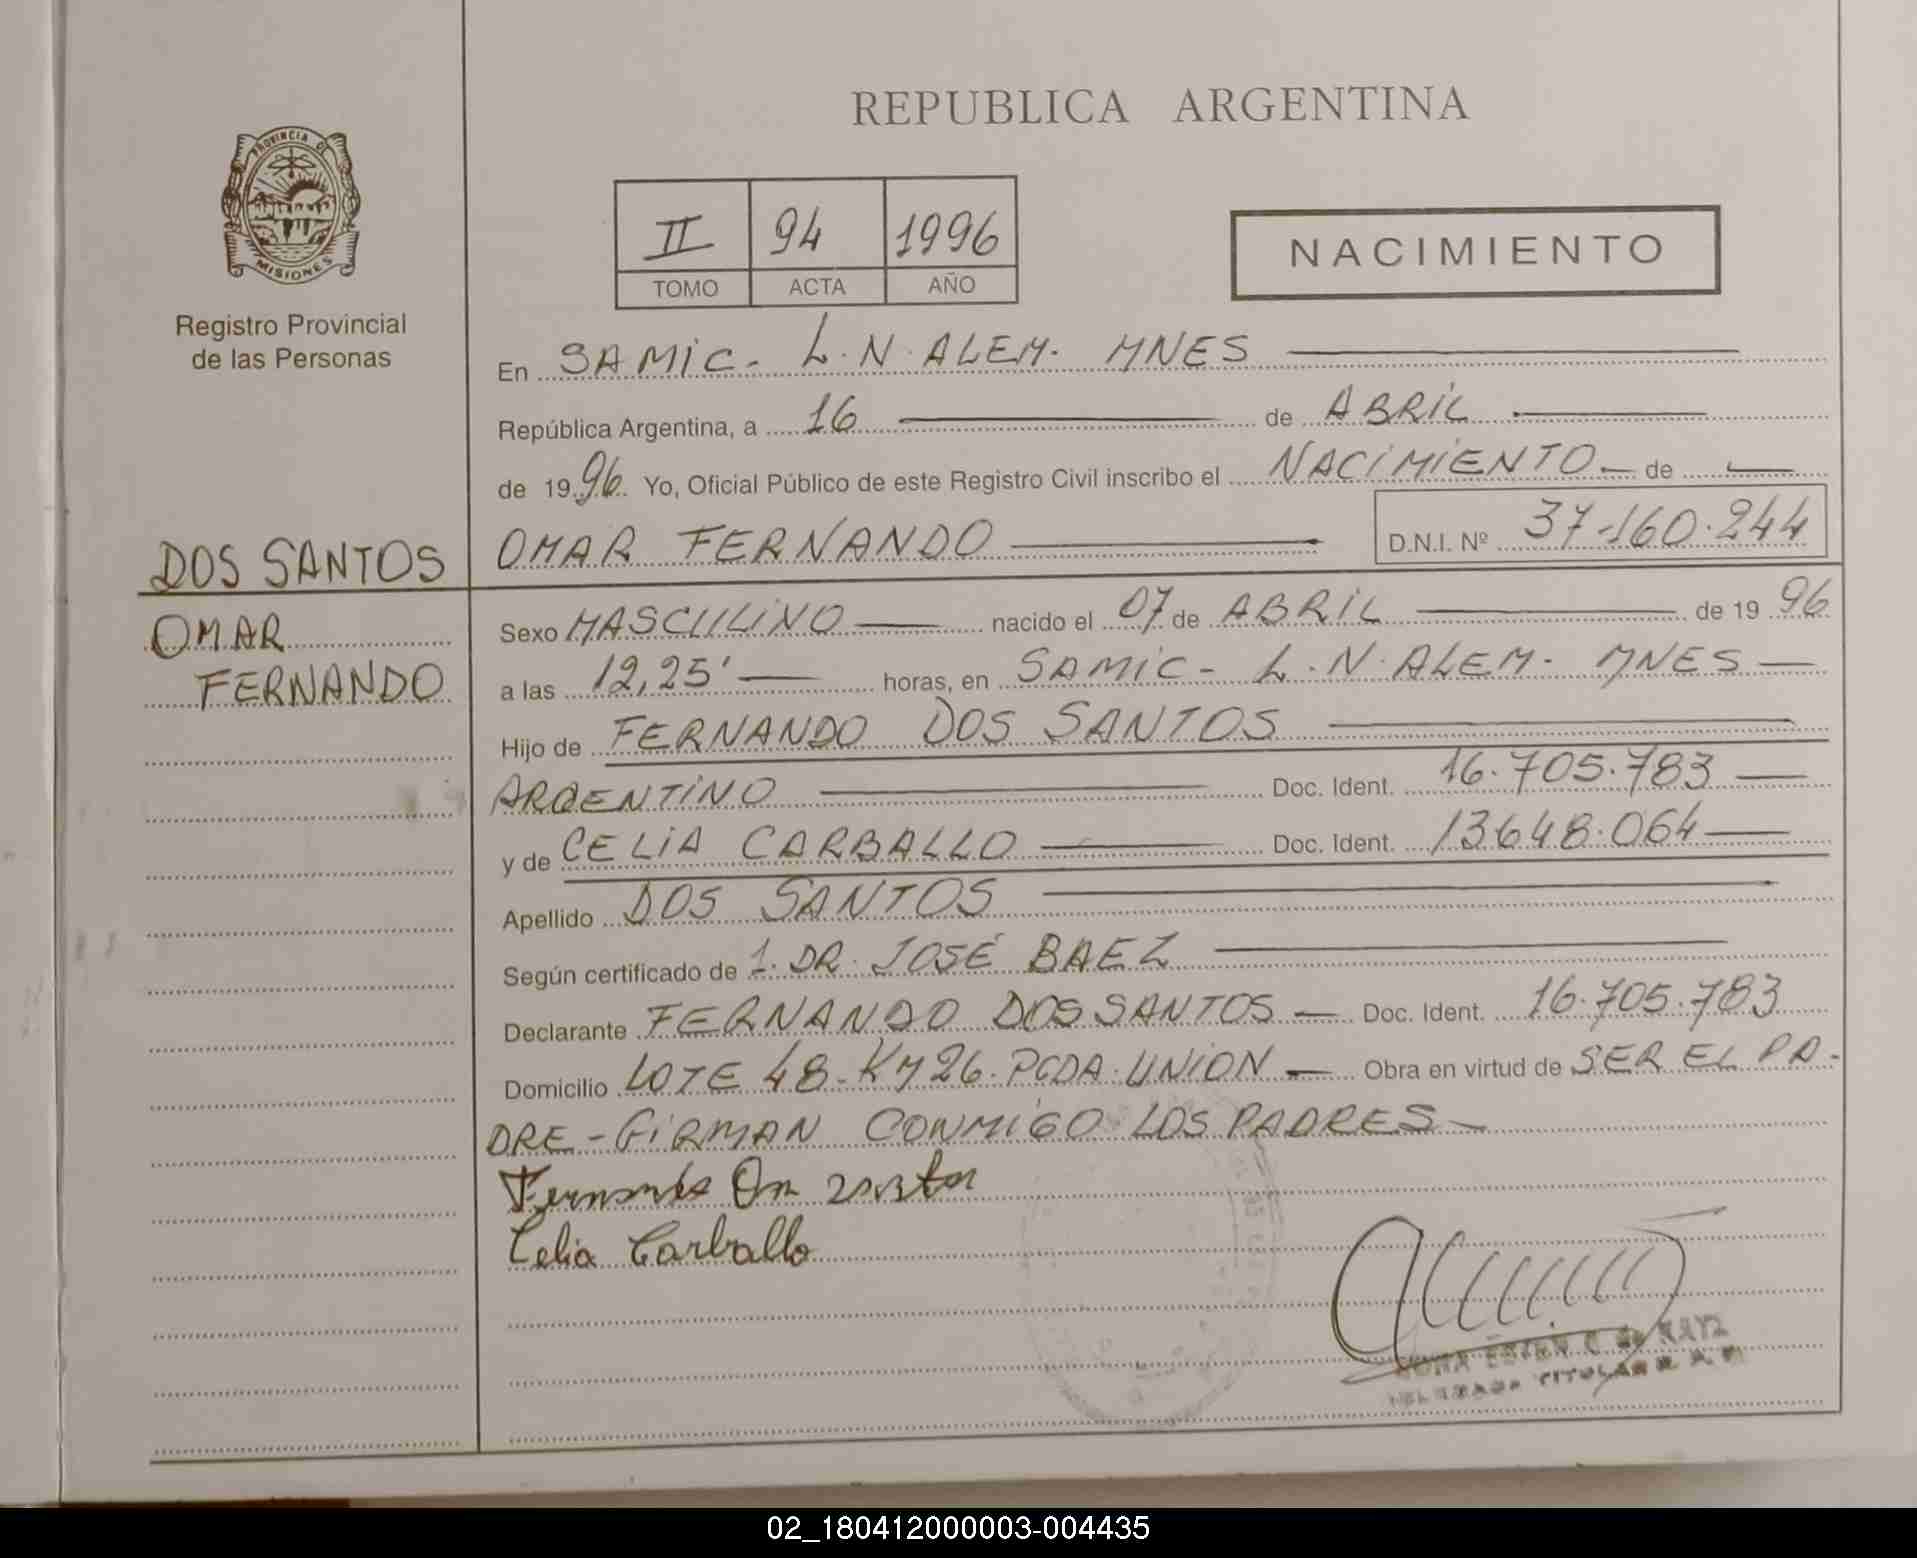 REPUBLICA ARGENTINA
PROVINCIA DE
MISIONES
Registro Provincial
de las Personas
II 94 1996
TOMO ACTA AÑO
NACIMIENTO
En SAMIC - L.N. ALEM. MNES
República Argentina, a 16 de ABRIL
de 1996 Yo, Oficial Público de este Registro Civil inscribo el NACIMIENTO de
OMAR FERNANDO D.N.I. Nº 37.160.244
DOS SANTOS
OMAR
FERNANDO
Sexo MASCULINO nacido el 07 de ABRIL de 1996
a las 12,25' horas, en SAMIC - L.N. ALEM. MNES
Hijo de FERNANDO DOS SANTOS
ARGENTINO Doc. Ident. 16.705.783
y de CELIA CARBALLO Doc. Ident. 13648.064
Apellido DOS SANTOS
Según certificado de 1. DR. JOSÉ BAEZ
Declarante FERNANDO DOS SANTOS Doc. Ident. 16.705.783
Domicilio LOTE 48. KM 26. PCDA. UNION Obra en virtud de SER EL PA-
DRE - FIRMAN CONMIGO LOS PADRES
Celia Carballo
02_180412000003-004435